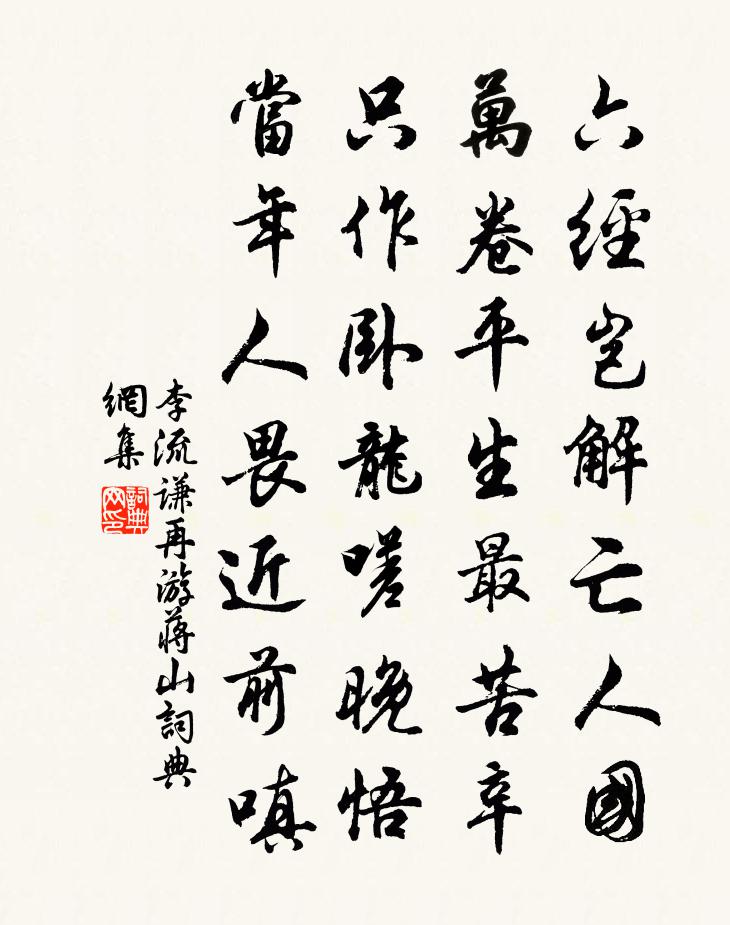 六經豈解亡人國
萬卷平生最苦辛
只作卧龍嗟晚悟
當年人畏近前嗔
李流谦再游蔣山詞典
網集
詞典
网印